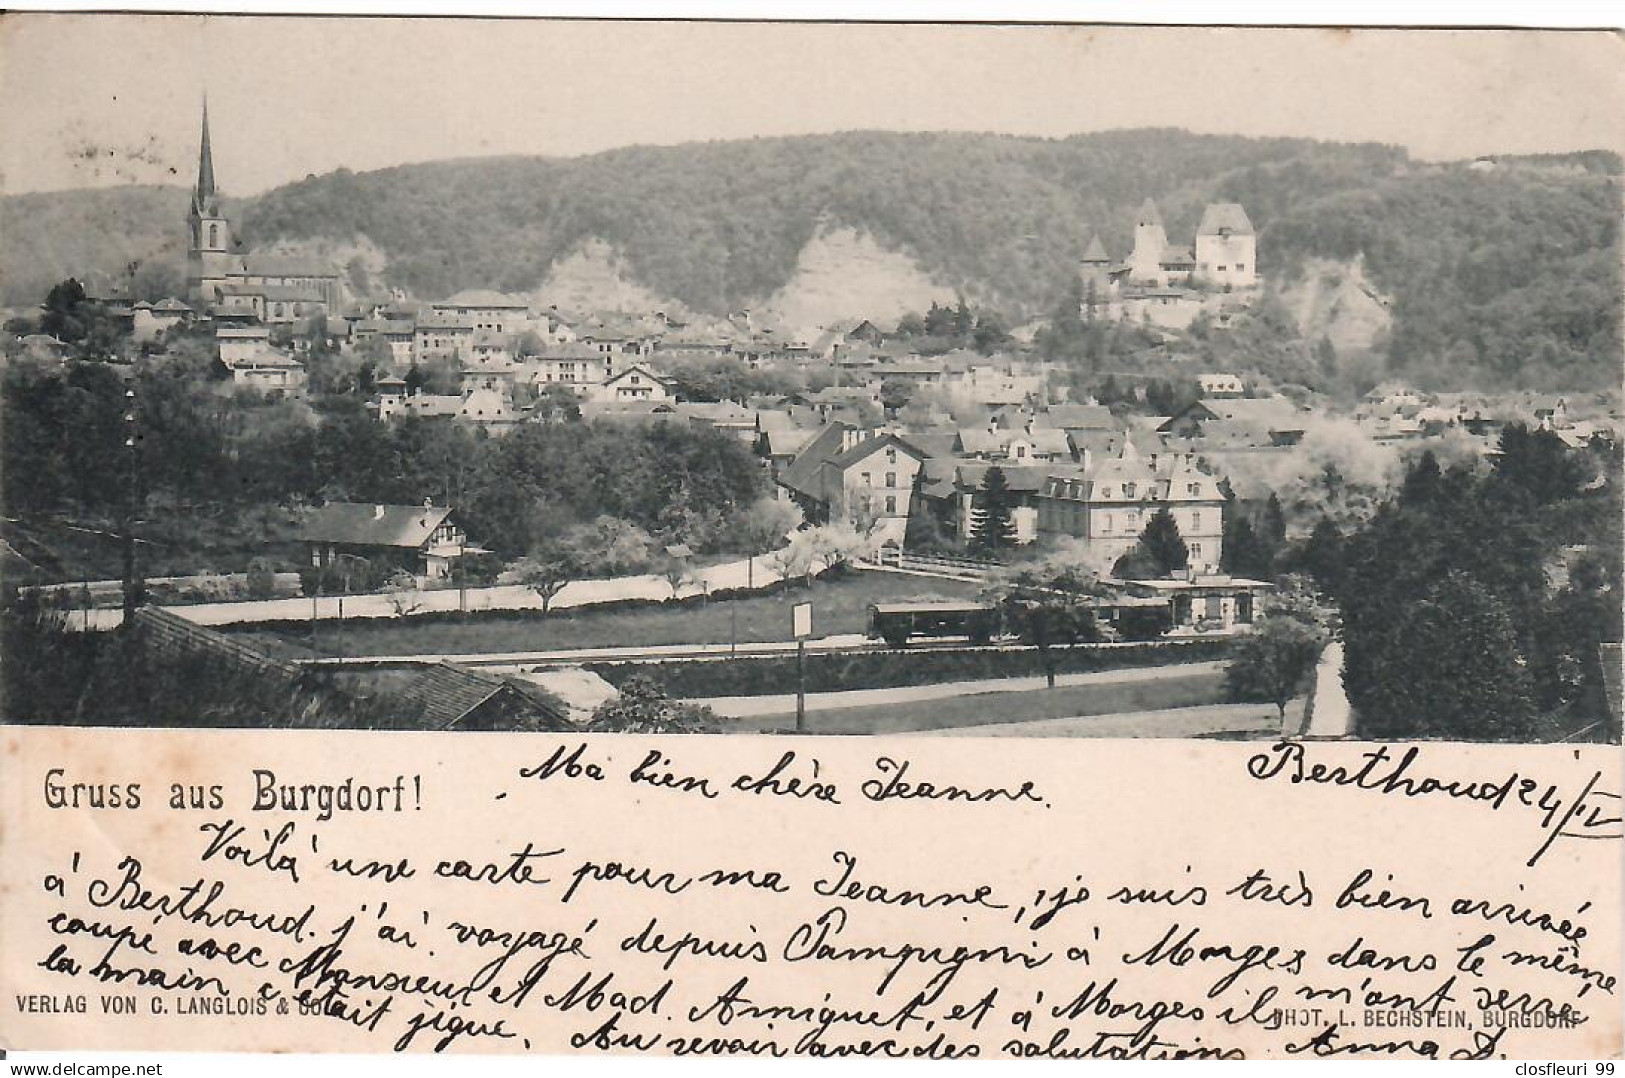 Gruss aus Burgdorf!
Ma bien chère Jeanne.
Berthoud 24/IV
Voilà une carte pour ma Jeanne, je suis très bien arrivée
à Berthoud. j'ai voyagé depuis Pampigni à Morges dans le même
coupé avec Monsieur et Mad. Amiguet, et à Morges il m'ont serré
la main c'était jigue. Au revoir avec des salutations Anna D.
VERLAG VON C. LANGLOIS & CO
PHOT. L. BECHSTEIN, BURGDORF
closfleuri 99
delcampe.net